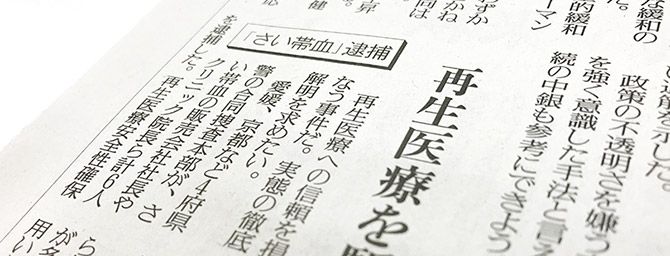 な緩和の
的緩和
ーマン
ずか
かね
同は
昇
健
応
を示した。
政策の不透明さを嫌う
を強く意識した手法と言え
続の中銀も参考にできよう
再生医療を
「さい帯血」逮捕
再生医療への信頼を損
なう事件だ。実態の徹底
解明を求めたい。
愛媛、京都など4府県
警の合同捜査本部が、さ
い帯血の販売会社社長や
クリニック院長ら計6人
を逮捕した。
再生医療安全性確保
ら
が多
用い